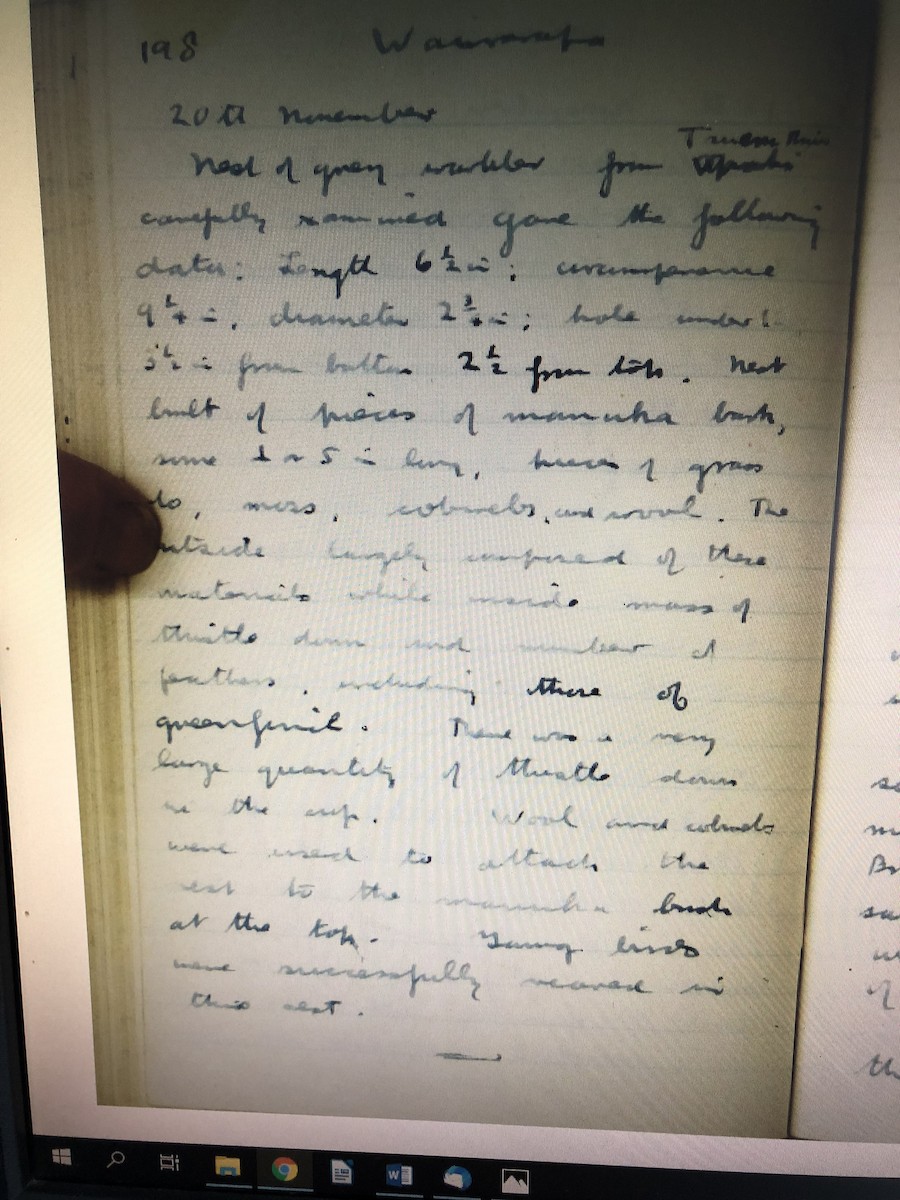 198 Wairarapa
20th November
Nest of grey warbler from
carefully examined gave the following
data: Length 6½ in; circumference
9¼ in, diameter 2¾ in; hole under
3½ in from bottom 2½ from top. Nest
built of pieces of manuka bark,
some 4 or 5 in long, pieces of grass
do, moss, cobwebs, and wool. The
outside largely composed of these
materials while inside mass of
thistle down and number of
feathers, including those of
greenfinch. There was a very
large quantity of thistle down
in the cup. Wool and cobwebs
were used to attach the
nest to the manuka bush
at the top. Young birds
were successfully reared in
this nest.